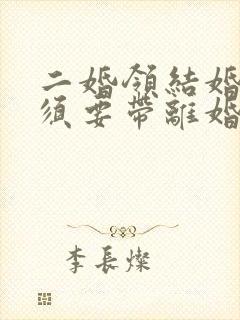 二婚領結婚
須要帶離婚
李長燦